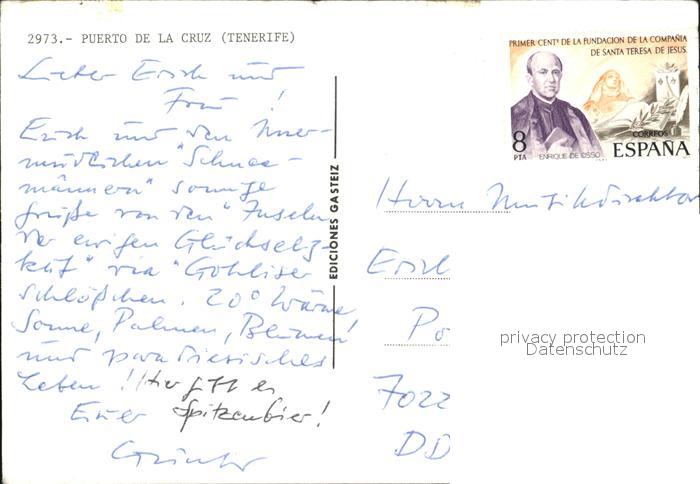 2973.- PUERTO DE LA CRUZ (TENERIFE)
Lieber Erich und
Frau !
Euch und den Uner-
müdlichen "Schnee-
männern" sonnige
Grüße von den "Inseln
der ewigen Glückselig-
keit" via "Gohliser
Schlößchen. 20° Wärme,
Sonne, Palmen, Blumen
und paradiesisches
Leben! Hier gibt es
Euer Spitzenbier!
Günter
EDICIONES GASTEIZ
PRIMER CENTº DE LA FUNDACION DE LA COMPAÑIA
DE SANTA TERESA DE JESUS.
8
PTA
ENRIQUE DE OSSO
CORREOS
ESPAÑA
Herrn Musikdirektor
Erich
Po
7022
DD
privacy protection
Datenschutz